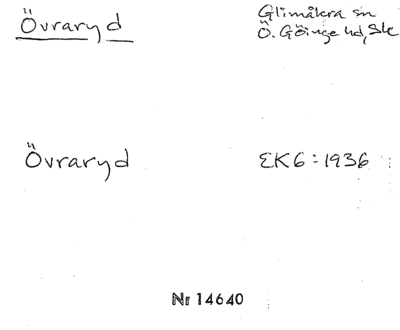 Övraryd
Glimåkra sn
Ö. Göinge hd, Sk
Övraryd
EK6:1936
Nr 14640